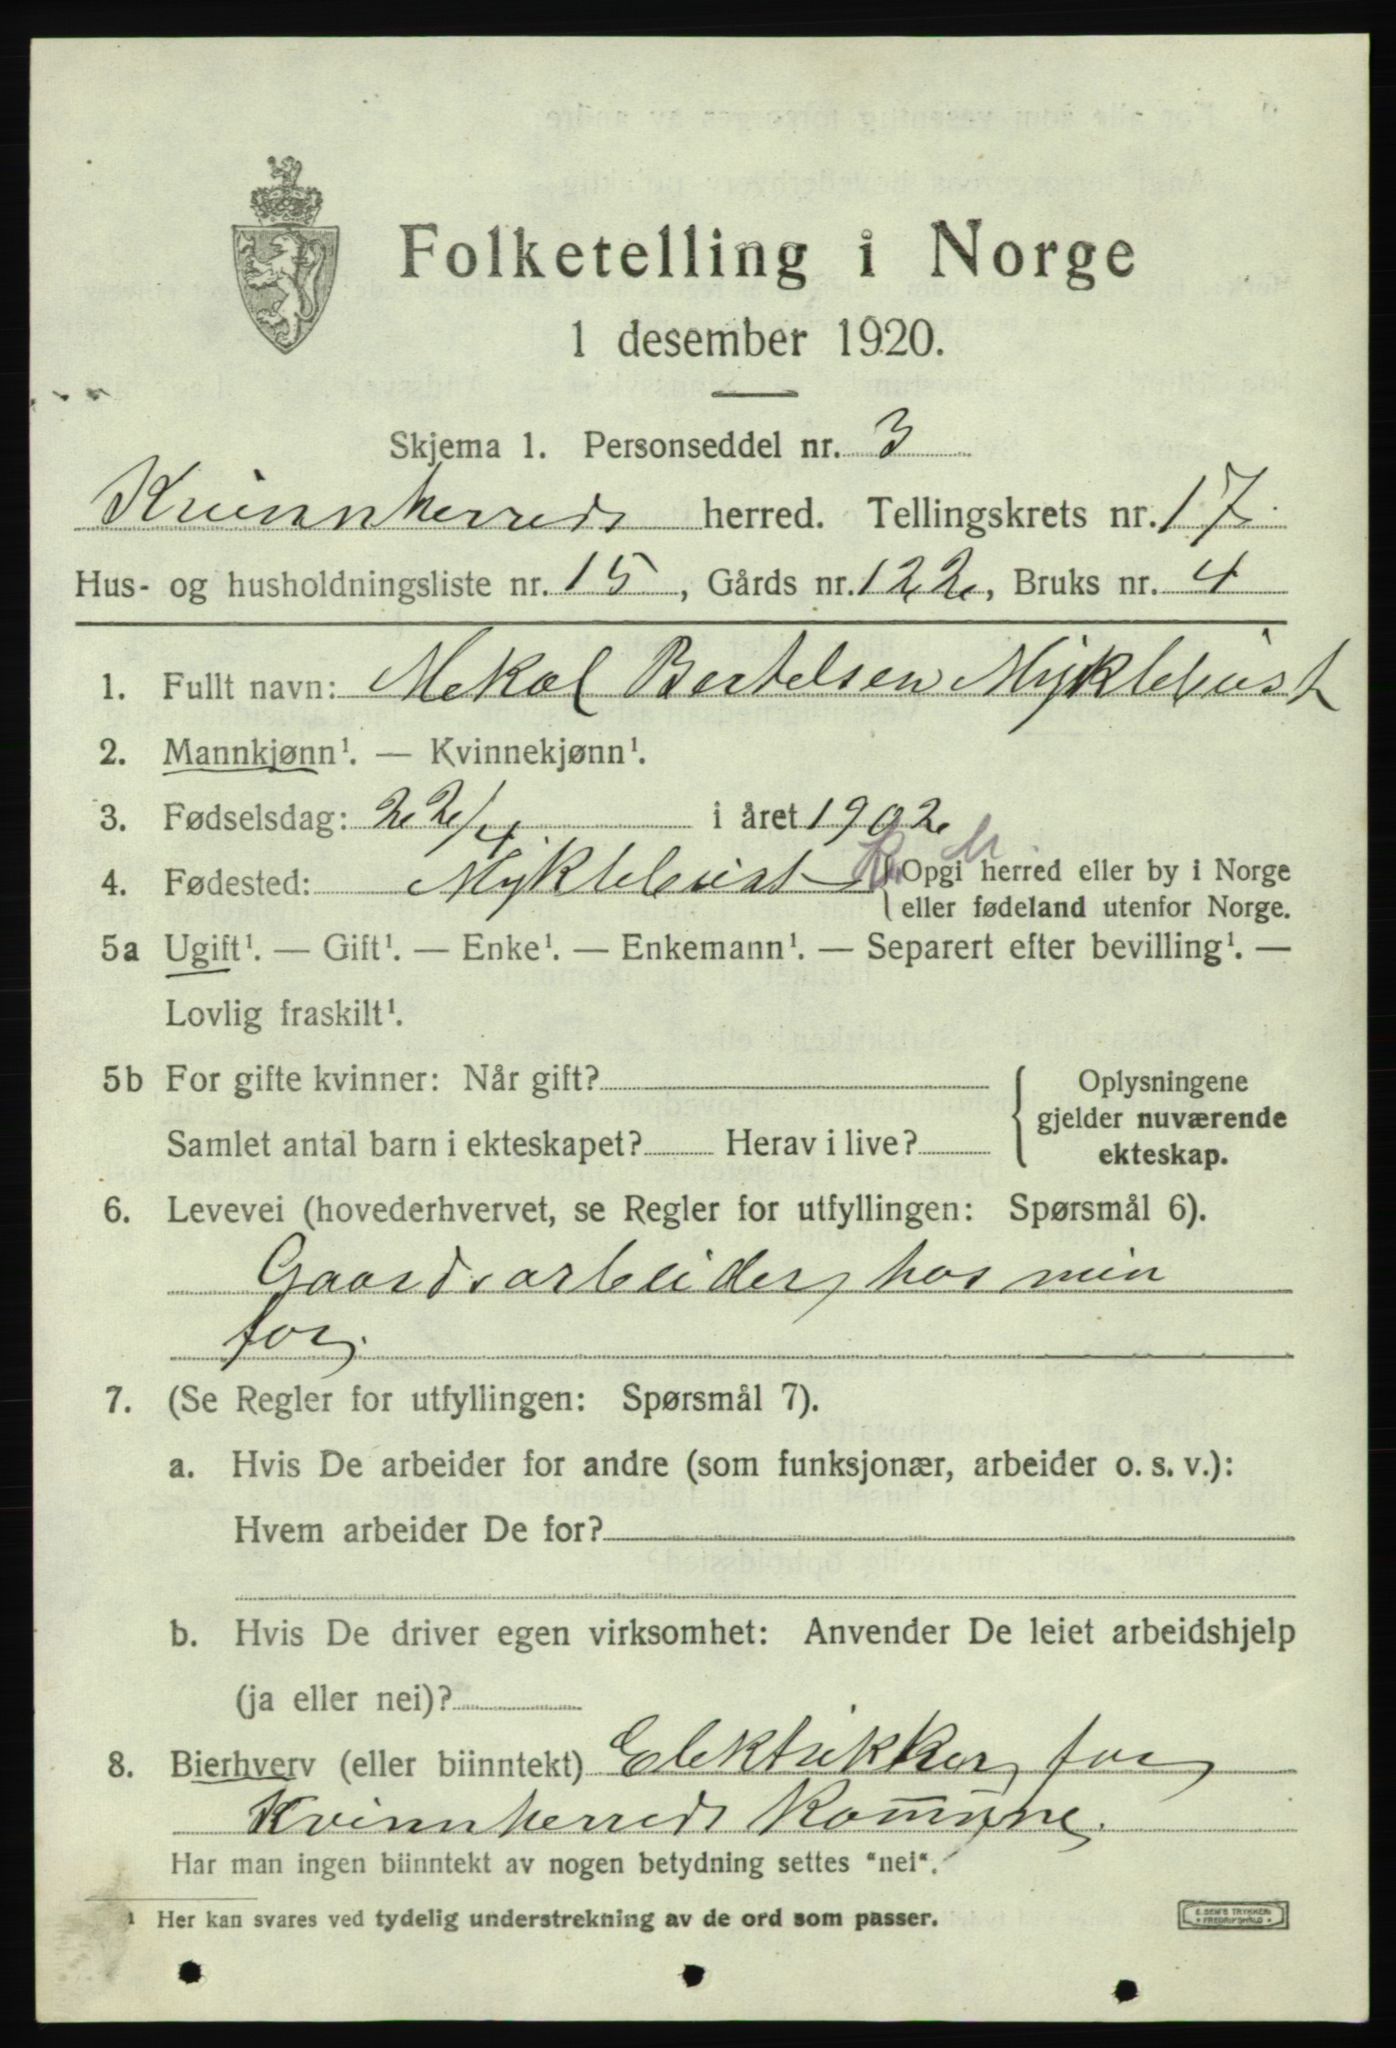 Folketelling i Norge
1 desember 1920.
Skjema 1. Personseddel nr. 3
Kvinnherreds herred. Tellingskrets nr. 17.
Hus- og husholdningsliste nr. 15, Gårds nr. 122, Bruks nr. 4
1. Fullt navn: Mekal Bertelsen Myklebust
2. Mannkjønn¹. — Kvinnekjønn¹.
3. Fødselsdag: 22/4 i året 1902
4. Fødested: Myklebust { Opgi herred eller by i Norge
eller fødeland utenfor Norge.
5a Ugift¹. — Gift¹. — Enke¹. — Enkemann¹. — Separert efter bevilling¹. —
Lovlig fraskilt¹.
5b For gifte kvinner: Når gift? { Oplysningene
gjelder nuværende
Samlet antal barn i ekteskapet? Herav i live? ekteskap.
6. Levevei (hovederhvervet, se Regler for utfyllingen: Spørsmål 6).
Gaardsarbeider hos min
far.
7. (Se Regler for utfyllingen: Spørsmål 7).
a. Hvis De arbeider for andre (som funksjonær, arbeider o. s. v.):
Hvem arbeider De for?
b. Hvis De driver egen virksomhet: Anvender De leiet arbeidshjelp
(ja eller nei)?
8. Bierhverv (eller biinntekt) Elektrikker for
Kvinnherreds Kommune.
Har man ingen biinntekt av nogen betydning settes "nei".
¹ Her kan svares ved tydelig understrekning av de ord som passer.
E. SEM'S TRYKKERI
FREDRIKSHALD